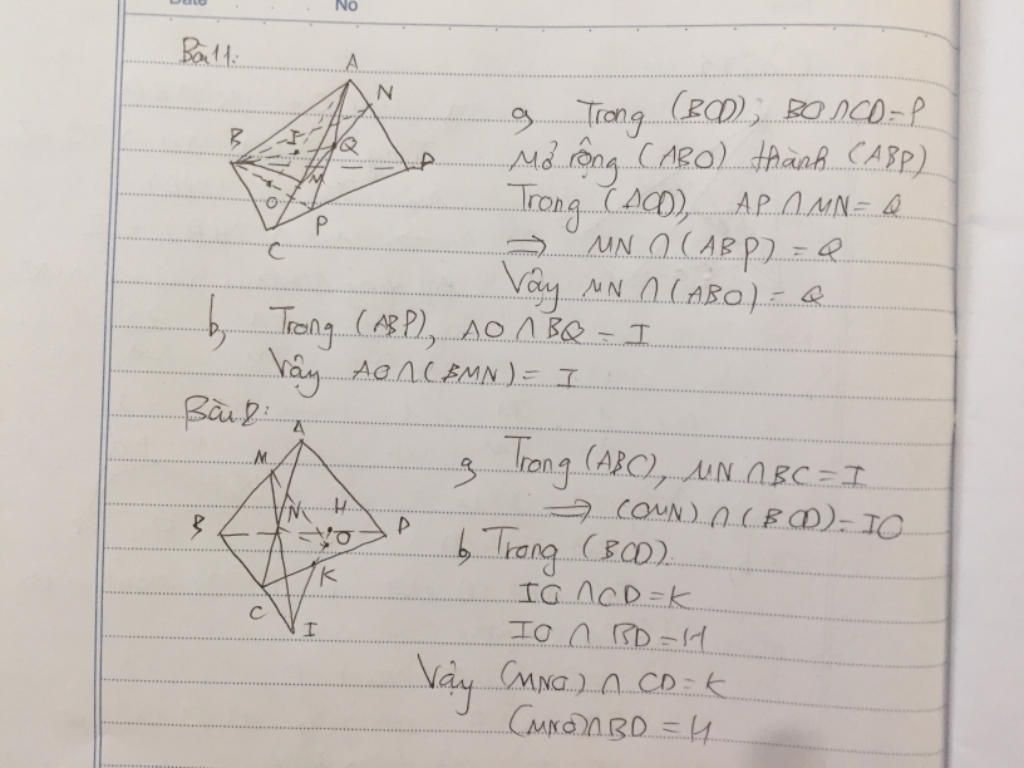 Date No
Bài 11:
A
N
B
I
Q
D
M
O
P
C
a, Trong (BCD); BO∩CD=P
Mở rộng (ABO) thành (ABP)
Trong (ACD), AP∩MN=Q
⇒ MN∩(ABP)=Q
Vậy MN∩(ABO)=Q
b, Trong (ABP), AO∩BQ=I
Vậy AO∩(BMN)=I
Bài 2:
A
M
N
H
B
O
D
K
C
I
a, Trong (ABC), MN∩BC=I
⇒ (OMN)∩(BCD)=IO
b, Trong (BCD).
IO∩CD=K
IO∩BD=H
Vậy (MNO)∩CD=K
(MNO)∩BD=H